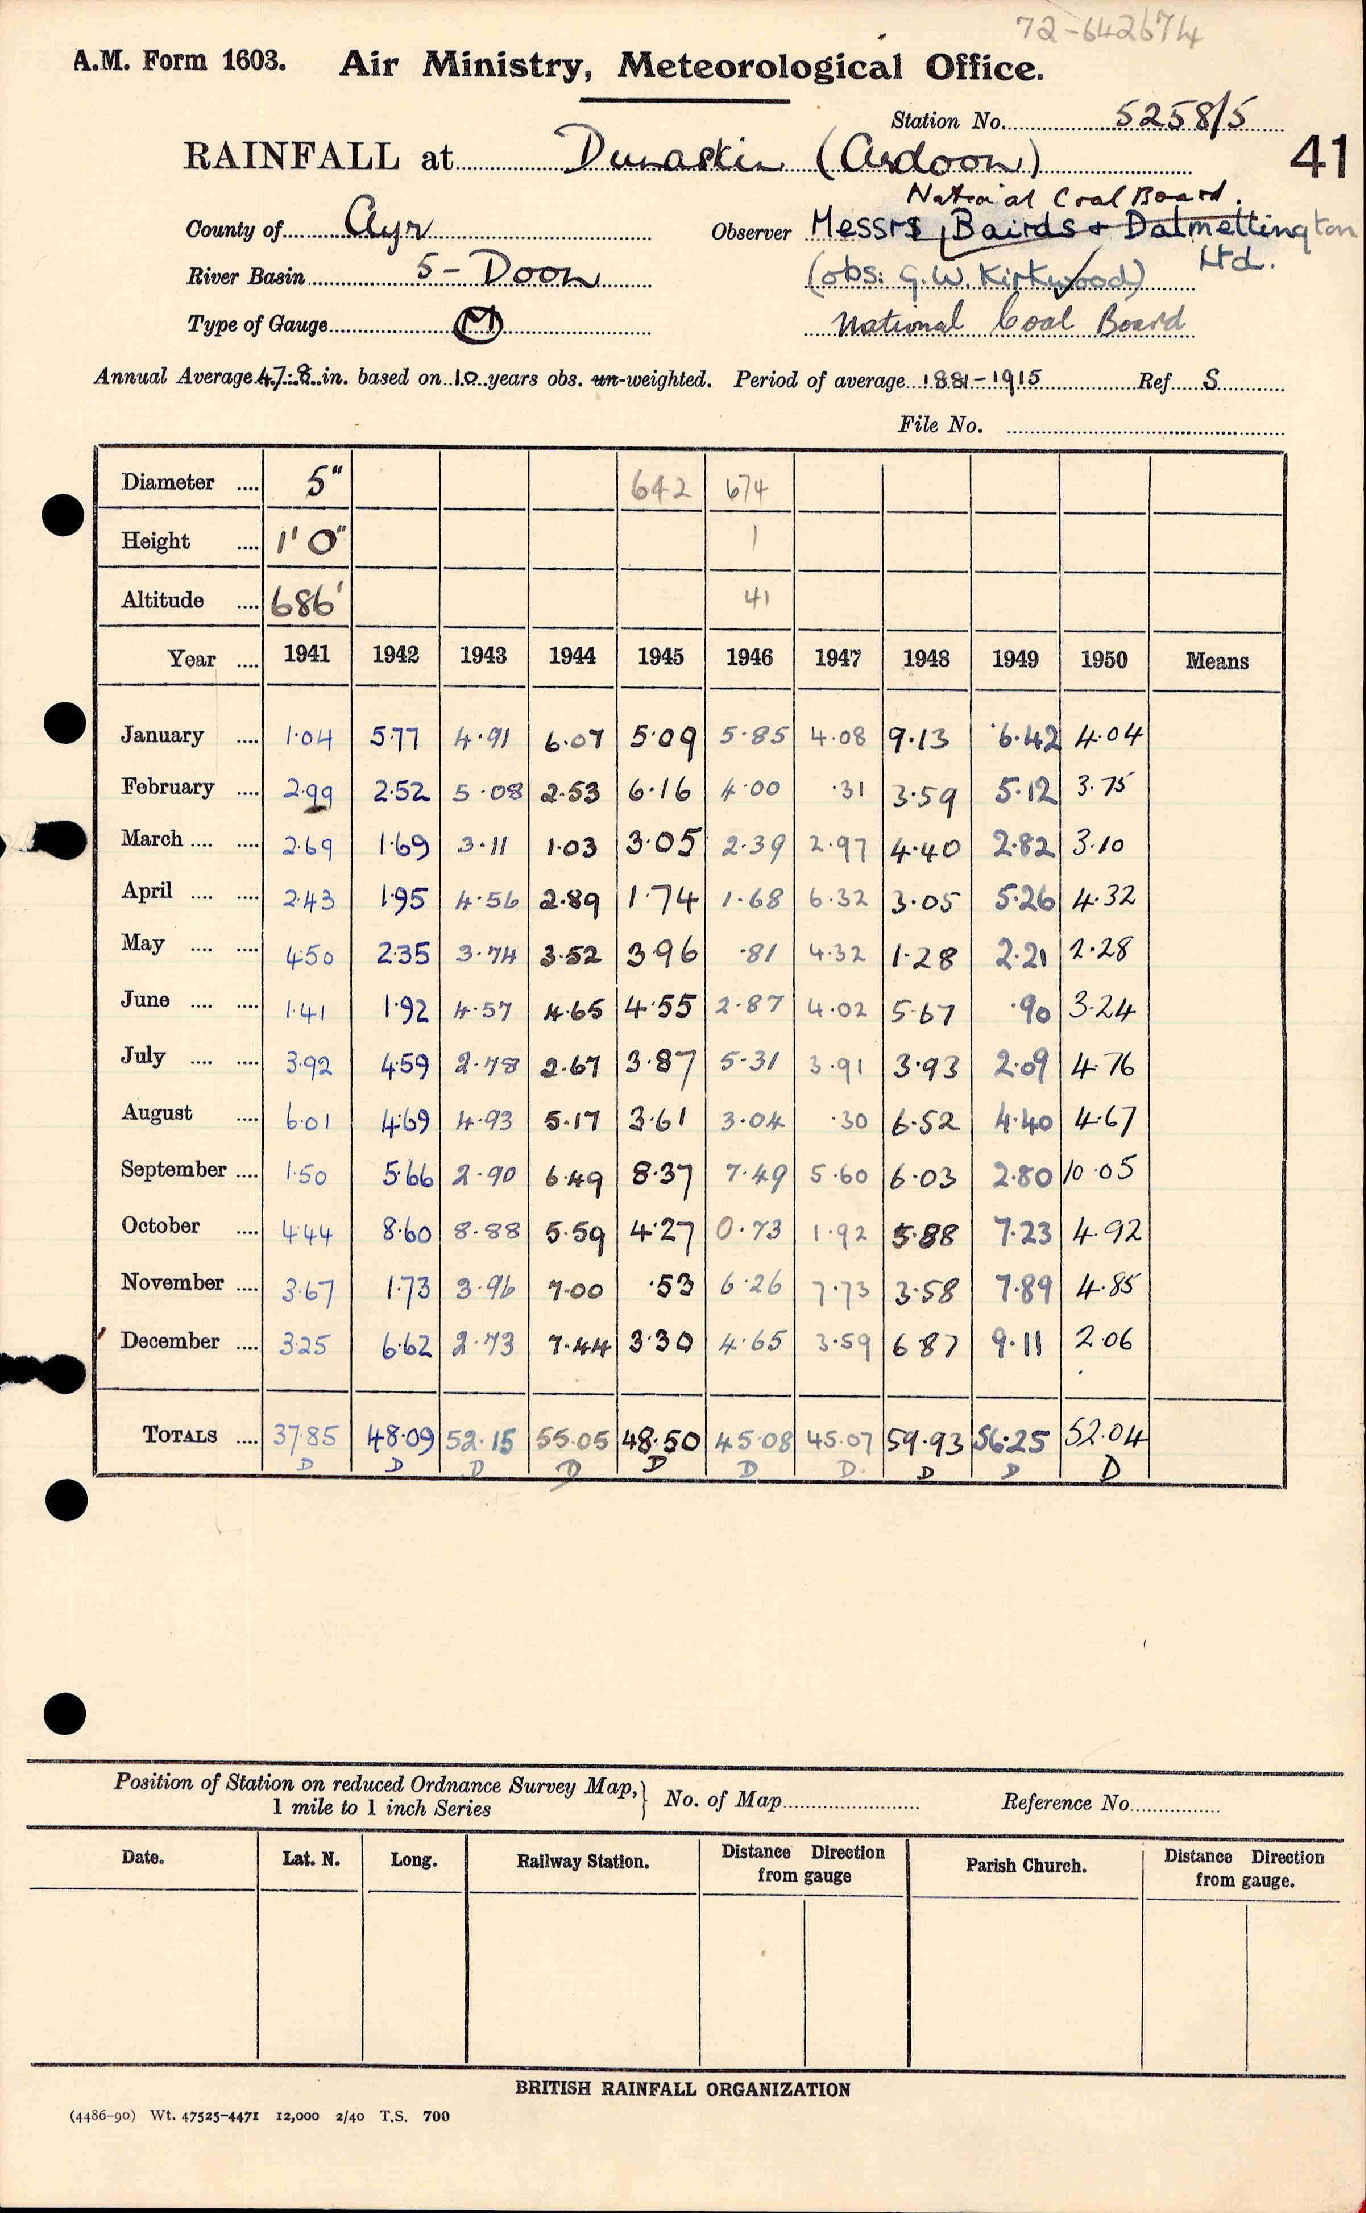 72-642674
A.M. Form 1603. Air Ministry, Meteorological Office.
Station No. 5258/5
RAINFALL at Dunaskin (Ardoon) 41
National Coal Board.
County of Ayr Observer Messrs Bairds & Dalmellington Ltd.
River Basin 5 - Doon (obs: G.W. Kirkwood)
Type of Gauge M National Coal Board
Annual Average 47.8 in. based on 10 years obs. un-weighted. Period of average 1881-1915 Ref S
File No.
Diameter .... 5" 642 674
Height .... 1' 0" 1
Altitude .... 686' 41
Year .... 1941 1942 1943 1944 1945 1946 1947 1948 1949 1950 Means
January .... 1.04 5.77 4.91 6.07 5.09 5.85 4.08 9.13 6.42 4.04
February .... 2.99 2.52 5.08 2.53 6.16 4.00 .31 3.59 5.12 3.75
March .... .... 2.69 1.69 3.11 1.03 3.05 2.39 2.97 4.40 2.82 3.10
April .... .... 2.43 1.95 4.56 2.89 1.74 1.68 6.32 3.05 5.26 4.32
May .... .... 4.50 2.35 3.74 3.52 3.96 .81 4.32 1.28 2.21 2.28
June .... .... 1.41 1.92 4.57 4.65 4.55 2.87 4.02 5.67 .90 3.24
July .... .... 3.92 4.59 2.78 2.67 3.87 5.31 3.91 3.93 2.09 4.76
August .... 6.01 4.69 4.93 5.17 3.61 3.04 .30 6.52 4.40 4.67
September .... 1.50 5.66 2.90 6.49 8.37 7.49 5.60 6.03 2.80 10.05
October .... 4.44 8.60 8.88 5.59 4.27 0.73 1.92 5.88 7.23 4.92
November .... 3.67 1.73 3.96 7.00 .53 6.26 7.73 3.58 7.89 4.85
December .... 3.25 6.62 2.73 7.44 3.30 4.65 3.59 6.87 9.11 2.06
TOTALS .... 37.85 48.09 52.15 55.05 48.50 45.08 45.07 59.93 56.25 52.04
D D D D D D D D D D
Position of Station on reduced Ordnance Survey Map, 1 mile to 1 inch Series } No. of Map Reference No.
Date. Lat. N. Long. Railway Station. Distance Direction from gauge Parish Church. Distance Direction from gauge.
BRITISH RAINFALL ORGANIZATION
(4486-90) Wt. 47525-4471 12,000 2/40 T.S. 700